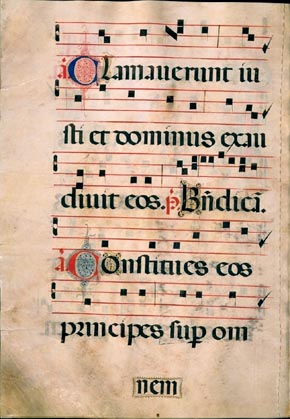 a Clamaverunt iu
sti et dominus exau
divit eos. p̄ Bn̄dicā.
a Constitues eos
principes sup om
nem